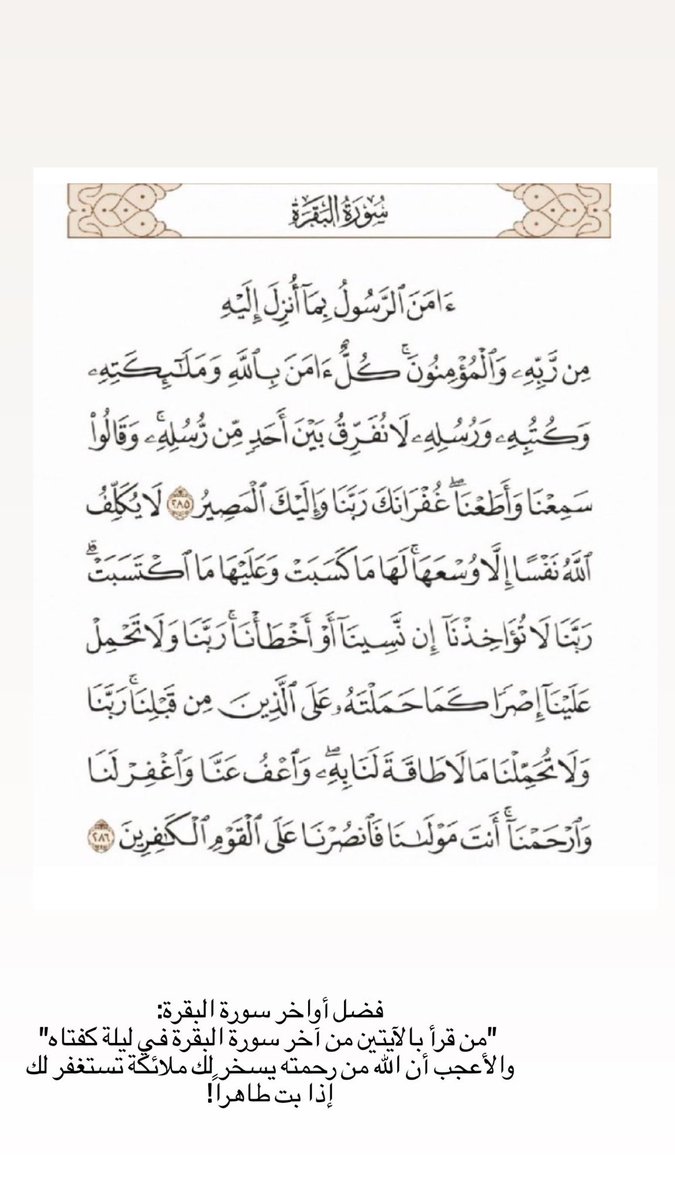 سُورَةُ البَقَرَةِ
ءَامَنَ ٱلرَّسُولُ بِمَآ أُنزِلَ إِلَيْهِ
مِن رَّبِّهِۦ وَٱلْمُؤْمِنُونَۚ كُلٌّ ءَامَنَ بِٱللَّهِ وَمَلَـٰٓئِكَتِهِۦ
وَكُتُبِهِۦ وَرُسُلِهِۦ لَا نُفَرِّقُ بَيْنَ أَحَدٍ مِّن رُّسُلِهِۦۚ وَقَالُوا۟
سَمِعْنَا وَأَطَعْنَاۖ غُفْرَانَكَ رَبَّنَا وَإِلَيْكَ ٱلْمَصِيرُ ٢٨٥ لَا يُكَلِّفُ
ٱللَّهُ نَفْسًا إِلَّا وُسْعَهَاۚ لَهَا مَا كَسَبَتْ وَعَلَيْهَا مَا ٱكْتَسَبَتْۗ
رَبَّنَا لَا تُؤَاخِذْنَآ إِن نَّسِينَآ أَوْ أَخْطَأْنَاۚ رَبَّنَا وَلَا تَحْمِلْ
عَلَيْنَآ إِصْرًا كَمَا حَمَلْتَهُۥ عَلَى ٱلَّذِينَ مِن قَبْلِنَاۚ رَبَّنَا
وَلَا تُحَمِّلْنَا مَا لَا طَاقَةَ لَنَا بِهِۦۖ وَٱعْفُ عَنَّا وَٱغْفِرْ لَنَا
وَٱرْحَمْنَآۚ أَنتَ مَوْلَىٰنَا فَٱنصُرْنَا عَلَى ٱلْقَوْمِ ٱلْكَـٰفِرِينَ ٢٨٦
فضل أواخر سورة البقرة:
"من قرأ بالآيتين من آخر سورة البقرة في ليلة كفتاه"
والأعجب أن الله من رحمته يسخر لك ملائكة تستغفر لك
إذا بت طاهراً!